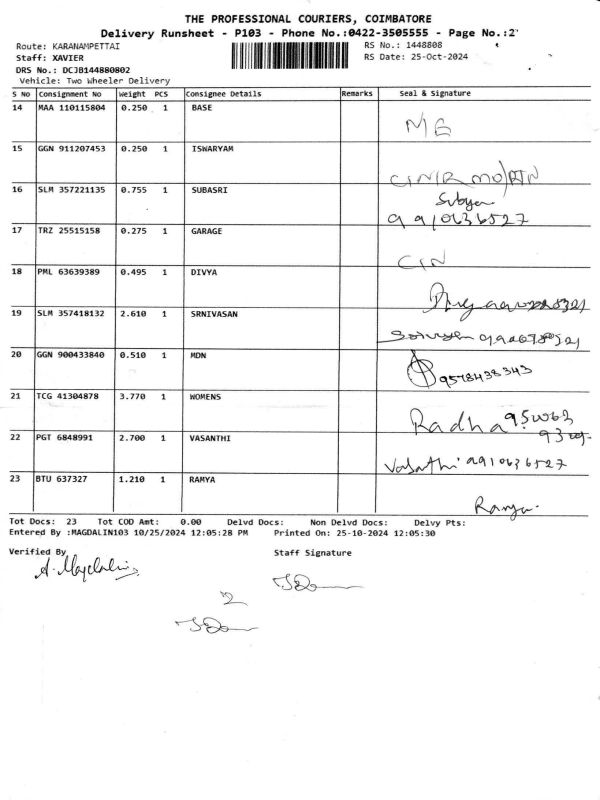 THE PROFESSIONAL COURIERS, COIMBATORE
Delivery Runsheet - P103 - Phone No.:0422-3505555 - Page No.:2
Route: KARANAMPETTAI
RS No.: 1448808
Staff: XAVIER
RS Date: 25-Oct-2024
DRS No.: DCJB144880802
Vehicle: Two Wheeler Delivery
S No Consignment No Weight PCS Consignee Details Remarks Seal & Signature
14 MAA 110115804 0.250 1 BASE
15 GGN 911207453 0.250 1 ISWARYAM
16 SLM 357221135 0.755 1 SUBASRI
9910636527
17 TRZ 25515158 0.275 1 GARAGE
CIN
18 PML 63639389 0.495 1 DIVYA
19 SLM 357418132 2.610 1 SRNIVASAN
20 GGN 900433840 0.510 1 MDN
9578438343
21 TCG 41304878 3.770 1 WOMENS
Radha
22 PGT 6848991 2.700 1 VASANTHI
Vasathi 9910636527
23 BTU 637327 1.210 1 RAMYA
Ramya
Tot Docs: 23 Tot COD Amt: 0.00 Delvd Docs: Non Delvd Docs: Delvy Pts:
Entered By :MAGDALIN103 10/25/2024 12:05:28 PM Printed On: 25-10-2024 12:05:30
Verified By Staff Signature
A. Magdalin
2